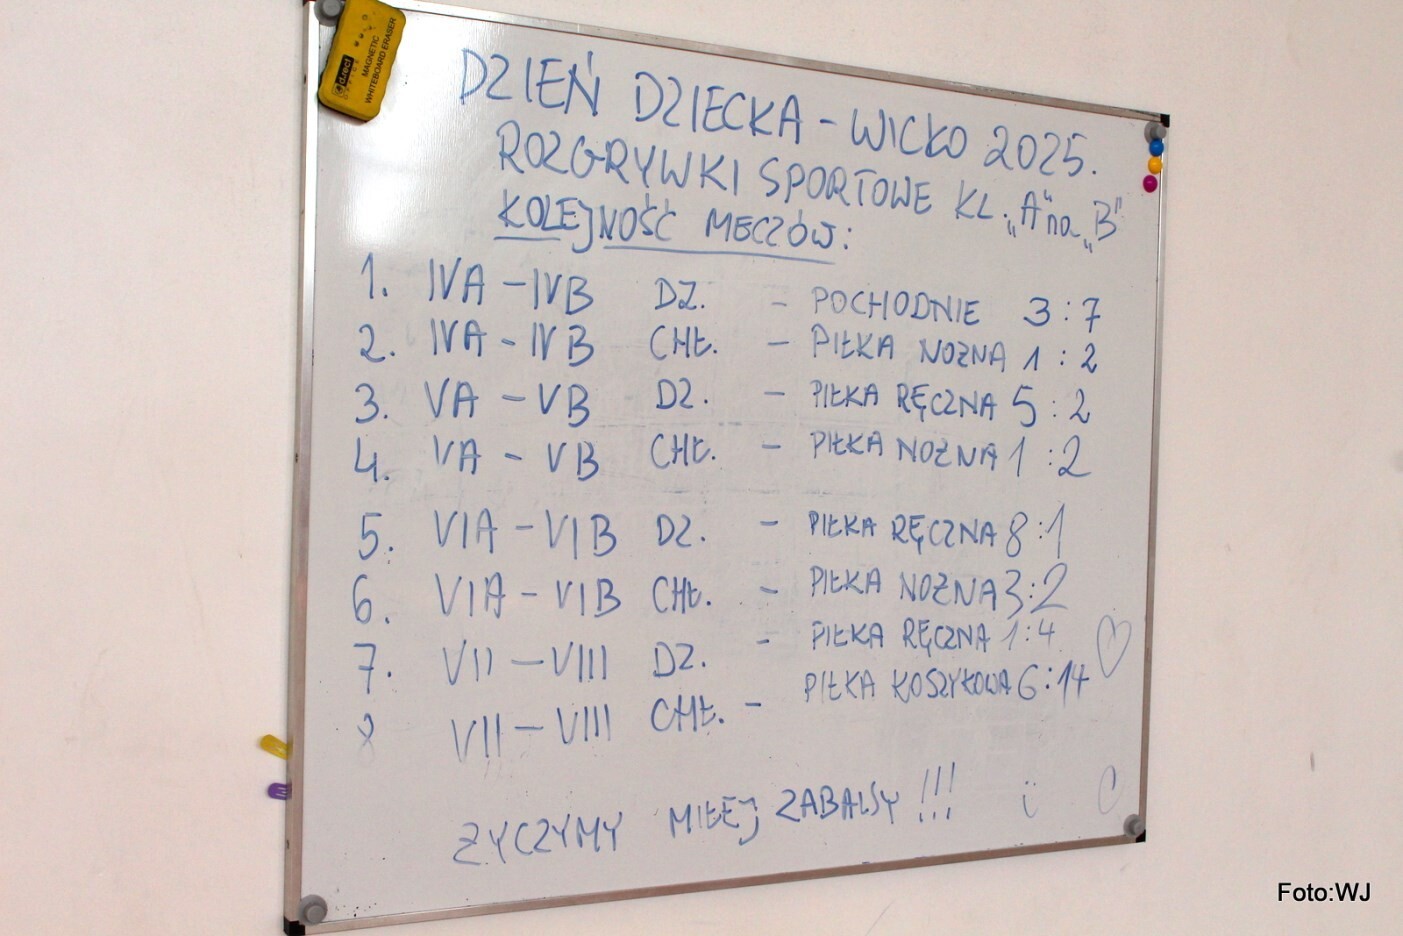 dirrect
OFFICE
MAGNETIC
WHITEBOARD ERASER
DZIEŃ DZIECKA - WICKO 2025.
ROZGRYWKI SPORTOWE KL. „A" na „B"
KOLEJNOŚĆ MECZÓW:
1. IVA - IVB DZ. - POCHODNIE 3:7
2. IVA - IVB CHŁ. - PIŁKA NOŻNA 1:2
3. VA - VB DZ. - PIŁKA RĘCZNA 5:2
4. VA - VB CHŁ. - PIŁKA NOŻNA 1:2
5. VIA - VIB DZ. - PIŁKA RĘCZNA 8:1
6. VIA - VIB CHŁ. - PIŁKA NOŻNA 3:2
7. VII - VIII DZ. - PIŁKA RĘCZNA 1:4
8 VII - VIII CHŁ. - PIŁKA KOSZYKOWA 6:14
ŻYCZYMY MIŁEJ ZABAWY !!!
Foto:WJ